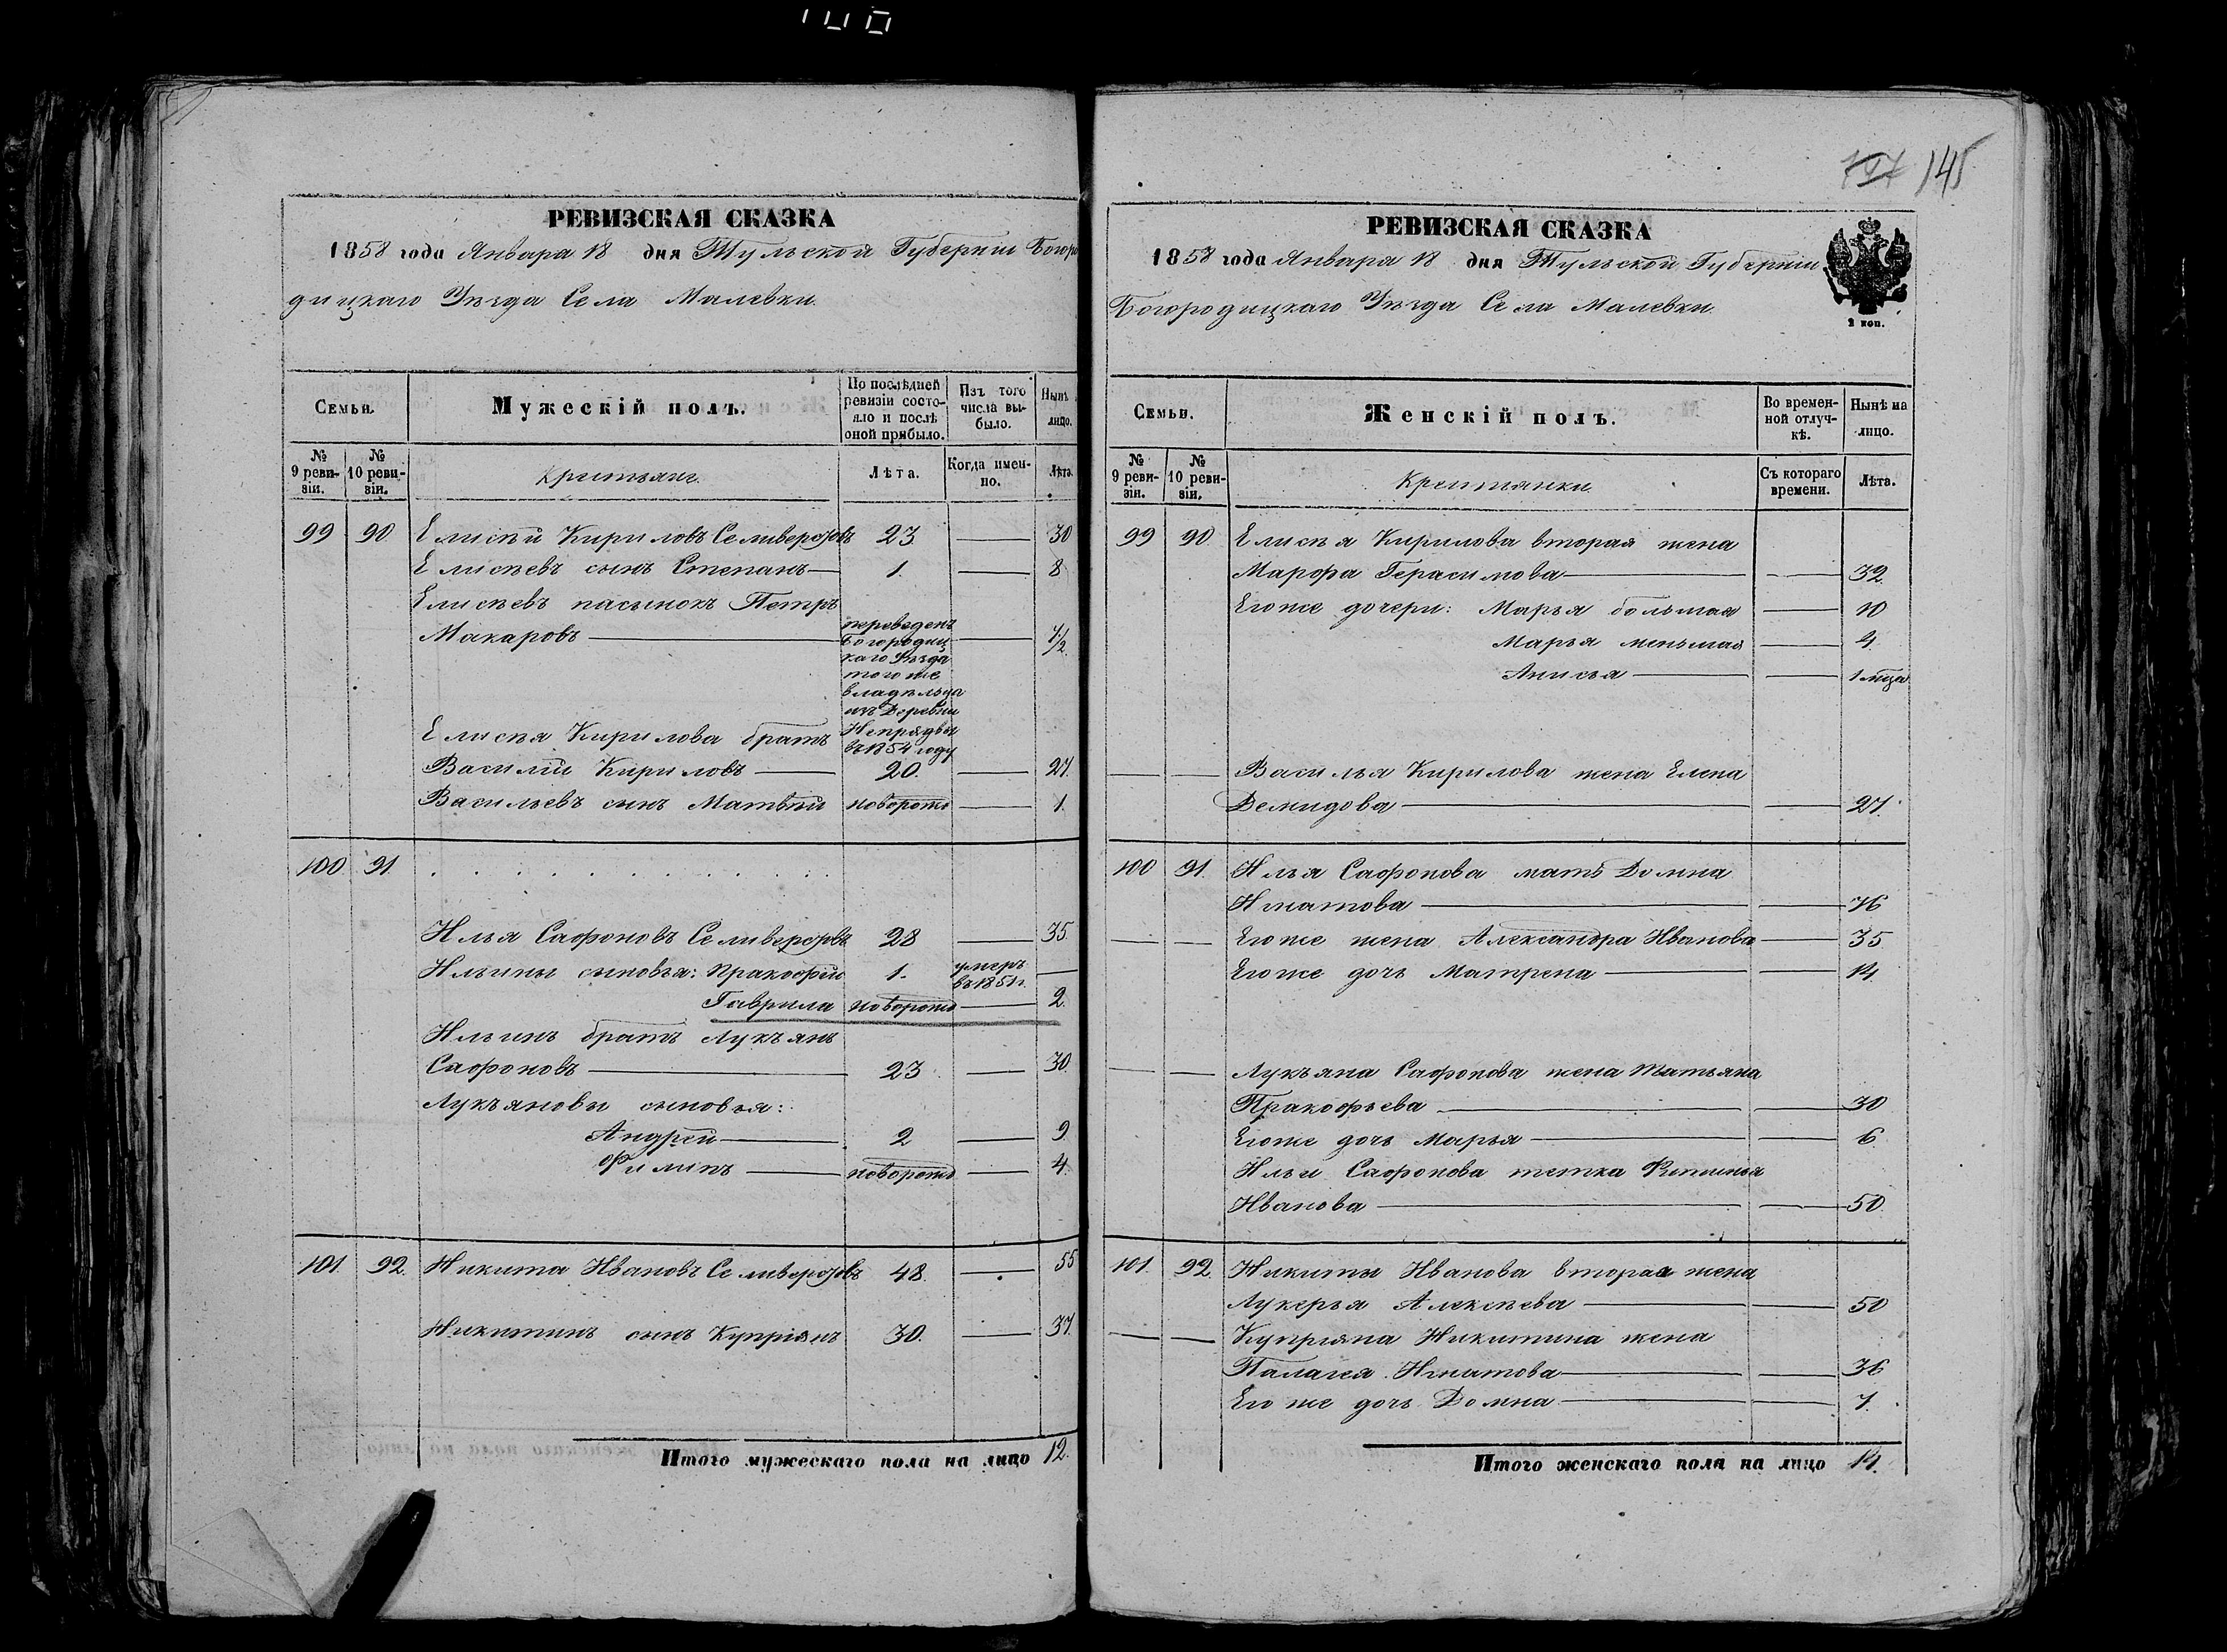 145
РЕВИЗСКАЯ СКАЗКА
1858 года Января 18 дня Тульской Губерніи Богоро
дицкаго Уѣзда Села Малевки.
Семьи.
Мужескій полъ.
По послѣдней ревизіи состояло и послѣ оной прибыло.
Изъ того числа выбыло.
Нынѣ лицо.
№ 9 ревизіи.
№ 10 ревизіи.
Крестьяне.
Лѣта.
Когда именно.
Лѣта.
99 90 Елисѣй Кириловъ Селиверстовъ 23 — 30
Елисѣевъ сынъ Степанъ — 1. — 8
Елисѣевъ пасынокъ Петръ
Макаровъ — переведенъ Богородицкаго Уѣзда того же владѣльца изъ Деревни Непрядвы въ 1854 году — 7½
Елисѣя Кирилова братъ
Василій Кириловъ — 20. — 27.
Васильевъ сынъ Матвѣй новорожд — 1.
100 91. . . . . . . . . . . . . . . .
Илья Сафоновъ Селиверстовъ 28 — 35
Ильины сыновья: Пракофій 1. умеръ въ 1851 г. —
Гаврила новорожд — 2.
Ильинъ братъ Лукъянъ
Сафоновъ — 23 — 30.
Лукъяновы сыновья:
Андрей — 2 — 9
Филипъ — новорожд — 4.
101. 92. Никита Ивановъ Селиверстовъ 48. — 55
Никитинъ сынъ Купріянъ 30. — 37.
Итого мужескаго пола на лицо 12.
РЕВИЗСКАЯ СКАЗКА
1858 года Января 18 дня Тульской Губерніи
Богородицкаго Уѣзда Села Малевки.
2 коп.
Семьи.
Женскій полъ.
Во временной отлучкѣ.
Нынѣ на лицо.
№ 9 ревизіи.
№ 10 ревизіи.
Крестьянки
Съ котораго времени.
Лѣта.
99 90. Елисѣя Кирилова вторая жена
Марфа Герасимова — — 32
Егоже дочери: Марья большая — 10
Марья меньшая — 4
Анисья — — 1 м-ца
— — Василья Кирилова жена Елена
Демидова — — 27.
100 91. Илья Сафонова мать Домна
Игнатова — — 76
— — Егоже жена Александра Иванова — 35
Егоже дочь Матрена — — 14.
— — Лукъяна Сафонова жена Татьяна
Пракофьева — — 30
Егоже дочь Марья — — 6
Ильи Сафонова тетка
Иванова — — 50
101. 92. Никиты Иванова вторая жена
Лукерья Алексѣева — — 50
— — Купріяна Никитина жена
Палагея Игнатова — — 36
Егоже дочь Домна — — 7.
Итого женскаго пола на лицо 14.